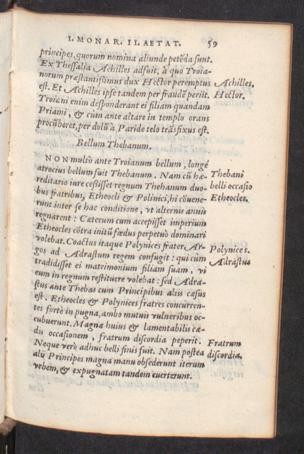 I. MONAR. II. AETAT. 59
principes, quorum nomina aliunde petēda sunt.
Ex Thessalia Achilles adfuit, à quo Troia-
norum præstantissimus dux Hector peremptus Achilles.
est. Et Achilles ipse tandem per fraudē periit. Hector.
Troiani enim desponderant ei filiam quandam
Priami, & cùm ante altare in templo orans
procūberet, per dolū à Paride telo trāsfixus est.
Bellum Thebanum.
NON multò ante Troianum bellum, longè
atrocius bellum fuit Thebanum. Nam cū hæ- Thebani
reditario iure cessisset regnum Thebanum duo- belli occasio
bus fratribus, Etheocli & Polinici, hi cōuene- Etheocles.
runt inter se hac conditione, vt alternis annis
regnarent: Cæterum cum accepisset imperium
Etheocles cōtra initū fœdus perpetuò dominari
volebat. Coactus itaque Polynices frater, Ar- Polynices.
gos ad Adrastum regem confugit: qui cùm Adrastus
tradidisset ei matrimonium filiam suam, vi
eum in regnum restituere volebat: sed Adra-
stus ante Thebas cum Principibus aliis cæsus
est. Etheocles & Polynices fratres concurren-
tes fortè in pugna, ambo mutuis vulneribus oc-
cubuerunt. Magna huius & lamentabilis cæ-
dis occasionem, fratrum discordia peperit. Fratrum
Neque verò adhuc belli finis fuit. Nam postea discordia.
alij Principes magna manu obsederunt iterum
vrbem, & expugnatam tandem euerterunt.